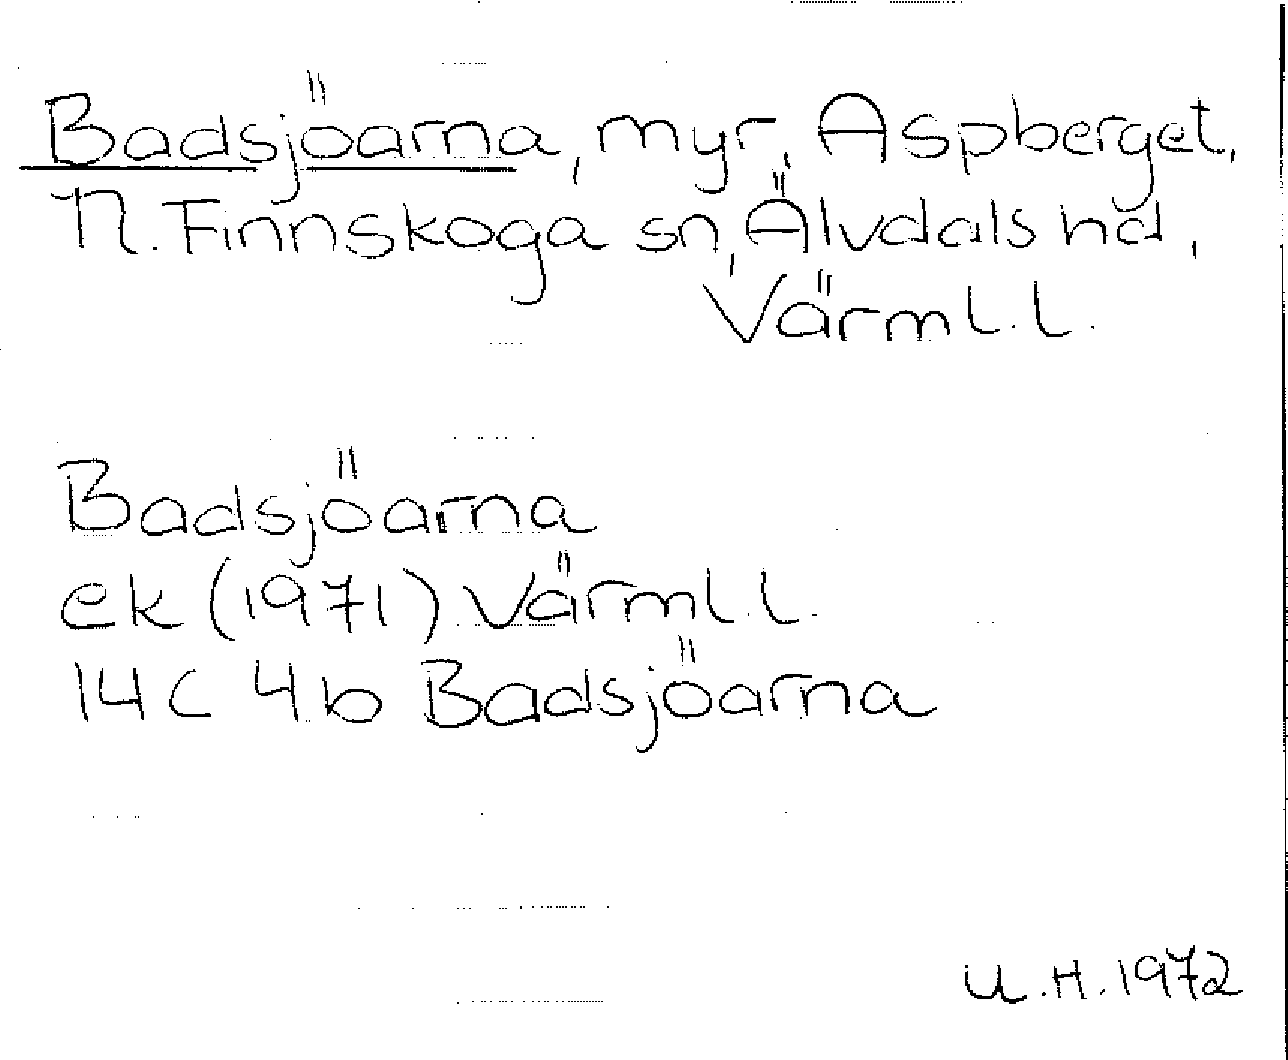 Badsjöarna, myr, Aspberget,
N. Finnskoga sn, Älvdals hd,
Värml. l.
Badsjöarna
ek (1971) Värml. l.
14 C 4b Badsjöarna
U.H. 1972